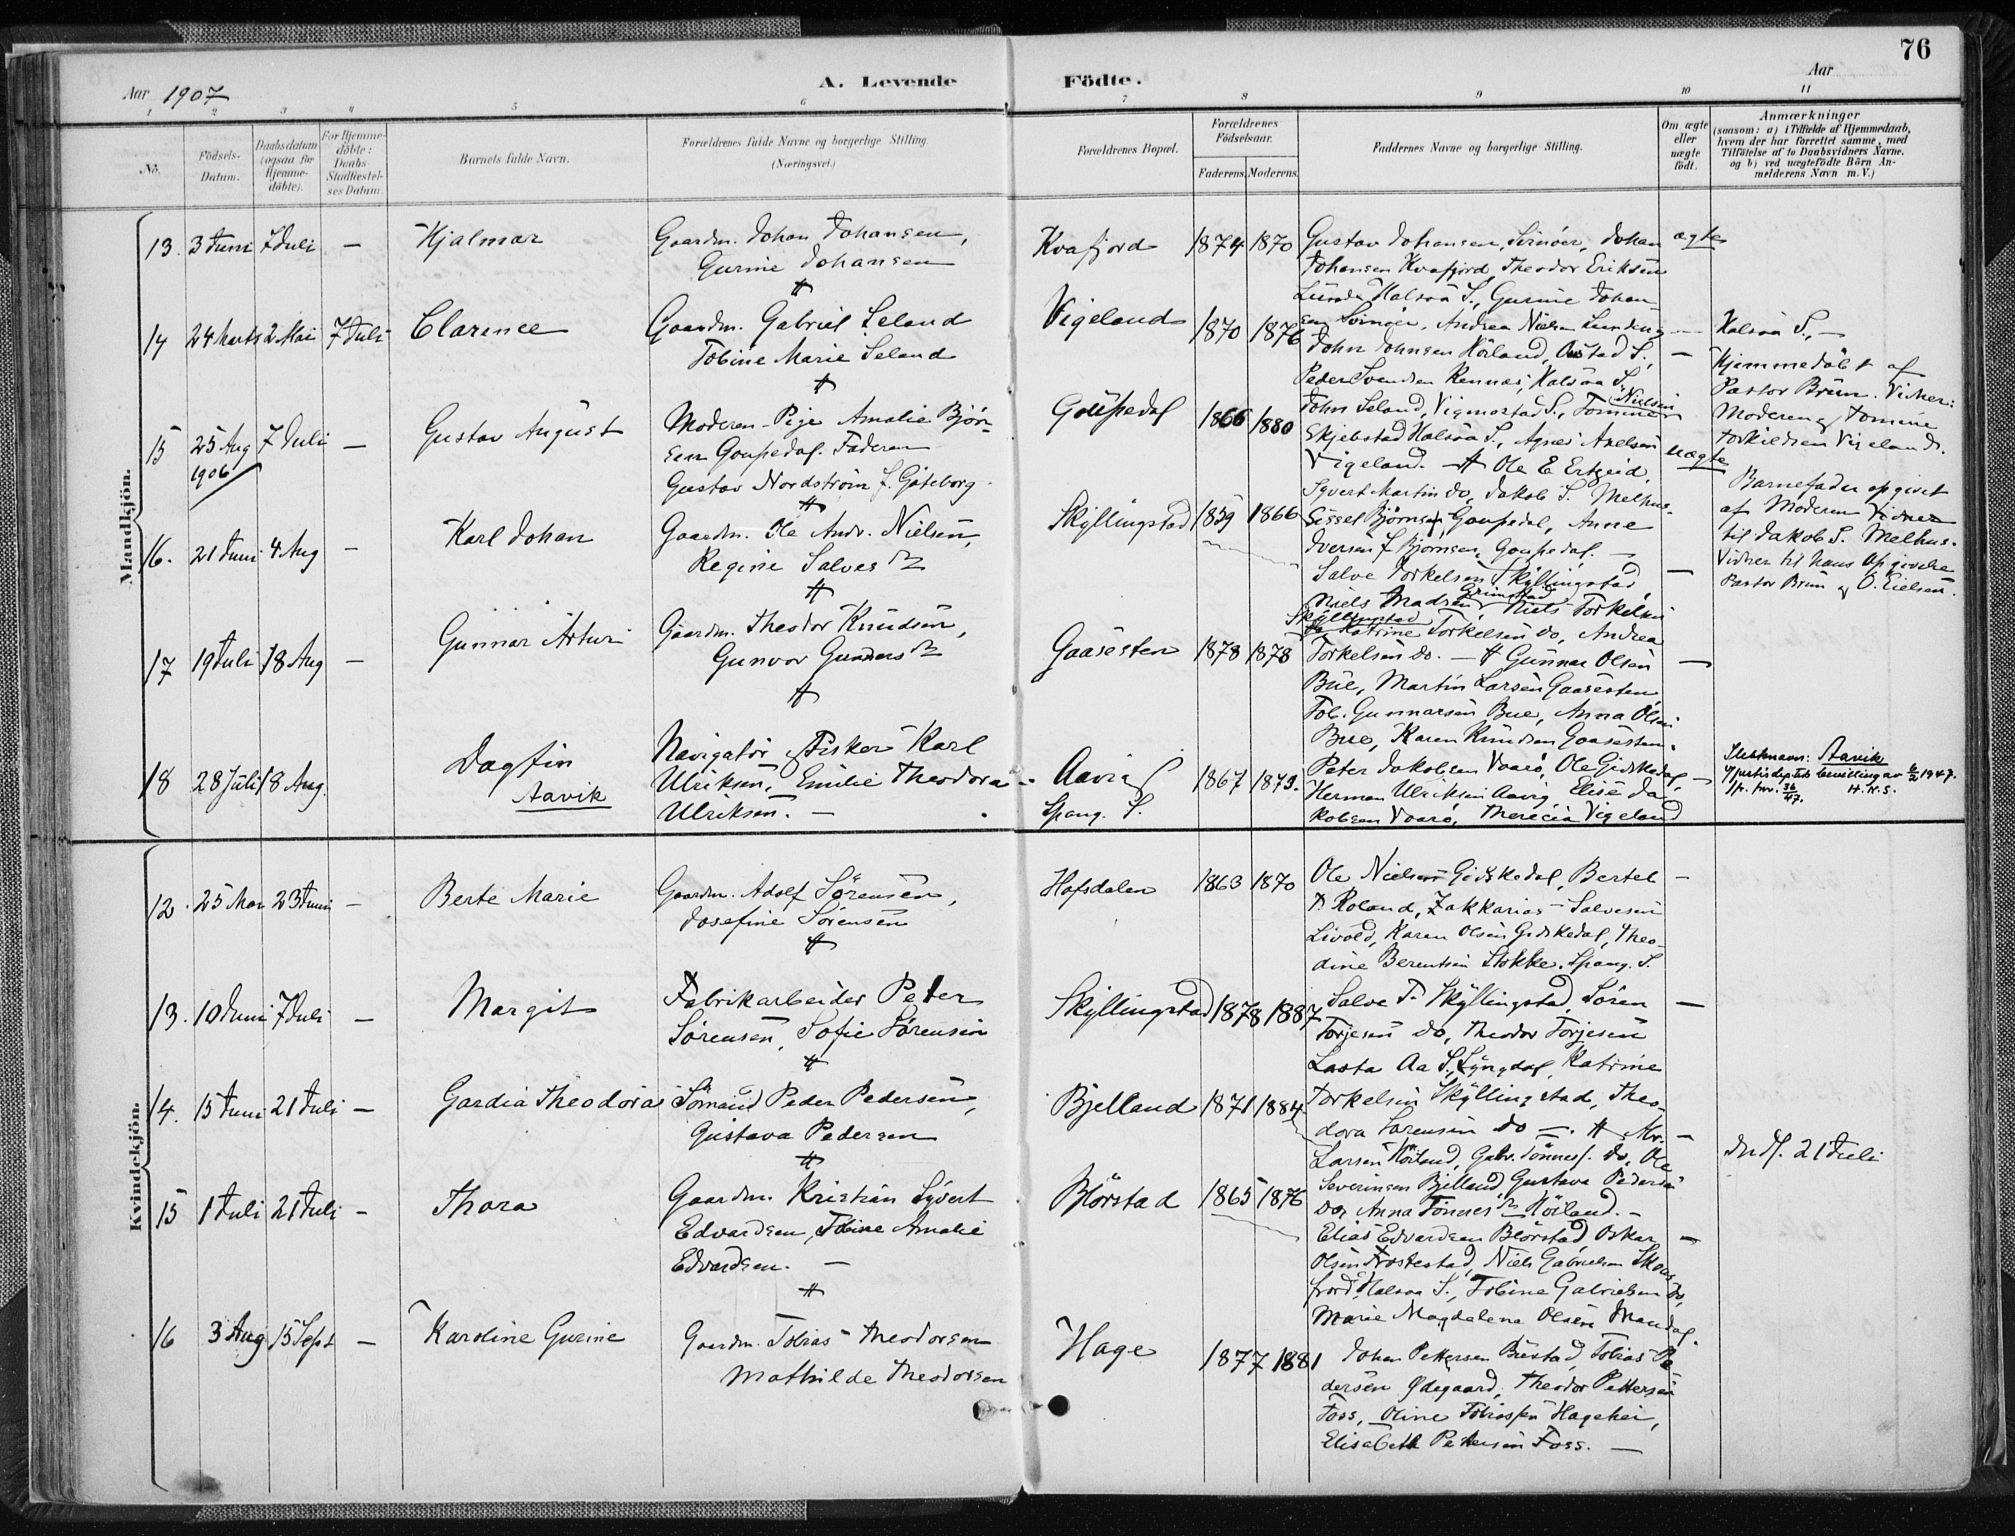 76
Aar 1907
A. Levende Födte.
Aar
1 2 3 4 5 6 7 8 9 10 11
No.
Födsels-Datum.
Daabsdatum (ogsaa for Hjemme-döbte).
For Hjemme-döbte: Daabs-Stadfæstel-ses Datum.
Barnets fulde Navn.
Forældrenes fulde Navne og borgerlige Stilling. (Næringsvei.)
Forældrenes Bopæl.
Forældrenes Födselsaar.
Faderens. Moderens.
Faddernes Navne og borgerlige Stilling.
Om ægte eller uægte födt.
Anmærkninger
(saasom: a) i Tilfælde af Hjemmedaab,
hvem der har forrettet samme, med
Tilföielse af to Daabsvidners Navne.
og b) ved uægtefödte Börn An-
melderens Navn m. V.)
Mandkjön.
13. 3 Juni 7 Juli — Hjalmar
Gaardm. Johan Johansen,
Gurine Johansen
Kvafjord 1874 1870
Gustav Johansen, Svinöer, Johan
Johansen Kvafjord, Theodor Eriksen
Lunde Halsaa S., Gurine Johan
sen Svinöer, Andrea Nielsen
ægte
14 24 Marts 2 Mai 7 Juli Clarence
Gaardm. Gabriel Seland
Tobine Marie Seland
Vigeland 1870 1876
John Johnsen Hörland, S.,
Peder Svendsen Rennes, Halsaa S.
John Seland, Vigmostad S., Tomine Nielsen
Skjebstad Halsaa S., Agnes Axelsen
Vigeland. —
—
Halsaa S., —
Hjemmedöbt af
Pastor Brun. Vidner:
Moderen og Tomine
Torkildsen Vigeland.
15 25 Aug 1906 7 Juli — Gustav August
Moderen - Pige Amalie Björ-
sen Goupedal. Faderen
Gustav Nordström f. Göteborg
Goupedal 1866 1880
Ole E Erkseid,
Syvert Martin do, Jakob S. Melhus
Sissel Björnsen, Goupedal, Anne
Iversen f Bjornsen Goupedal. —
uægte
Barnefader opgivet
af Moderen Vidner
til Jakob S. Melhus.
Vidner til hans Opgivelse
Pastor Brun og O. Eielsen.
16. 21 Juni 4 Aug — Karl Johan
Gaardm. Ole Andr. Nielsen,
Regine Salves
Skyllingstad 1859 1866
Salve Torkelsen Skyllingstad
Niels Madsen Grimstad Niels Torkelsen
Skyllingstad
Katrine Torkelsen do, Andrea
Torkelsen do. —
—
17 19 Juli 18 Aug — Gunnar Artur
Gaardm. Theodor Knudsen,
Gunvor Gunders
Gaasesten 1878 1878
Gunnar Olsen
Bue, Martin Larsen Gaasesten
Tob. Gunnarsen Bue, Anna Olsen
Bue, Karen Knudsen Gaasesten.
—
18 28 Juli 18 Aug. Dagfin
Aavik
Navigatör Fisker Karl
Ulriksen, Emilie Theodora
Ulriksen. —
Aavig
Spang. S.
1867 1873.
Peter Jakobsen Vaarö, Ole Gidskedal,
Herman Ulriksen Aavig, Elise Ja
kobsen Vaarö, Therecia Vigeland
—
Slektsnavn: Aavik
justisdeptets bevilling av 6/2 1947.
jr. 36/47. H. N. S.
Kvindekjön.
12. 25 Mai 23 Juni — Berte Marie
Gaardm. Adolf Sörensen,
Josefine Sörensen
Hofsdalen 1863 1870
Ole Nielsen Gidskedal, Bertel
T. Roland, Zakkarias Salvesen
Livold, Karen Olsen Gidskedal, Theo-
dine Berentsen Stokke, Spang. S.
—
13. 10 Juni 7 Juli — Margit
Fabrikarbeider Peder
Sörensen, Sofie Sörensen
Skyllingstad 1878 1887
Salve T. Skyllingstad Sören
Torjesen do, Theodor Torjesen
Lasta Aa S., Lyngdal, Katrine
Torkelsen Skyllingstad, Theo-
dora Sörensen do —.
—
14. 15 Juni 21 Juli — Gardia Theodora
Sömand Peder Pedersen,
Gustava Pedersen
Bjelland 1871 1884
Larsen Höiland, Gabr. Tönnes. do, Ole
Severinsen Bjelland, Gustava Pedersen
do, Anna Tönnes Höiland. —
—
Indf. 21 Juli
15 1 Juli 21 Juli — Thora
Gaardm. Kristian Syvert
Edvardsen, Tobine Amalie
Edvardsen. —
Blörstad 1865 1876
Elias Edvardsen Blörstad Oskar
Olsen Frostestad, Niels Gabrielsen
Halsaa S., Tobine Gabrielsen do,
Marie Magdalena Olsen Mandal.
—
16 3 Aug 15 Sept — Karoline Gurine
Gaardm. Tobias Theodorsen
Mathilde Theodorsen
Hage 1877 1881
Johan Pettersen Bustad, Tobias Pe
dersen Ødegaard, Theodor Pettersen
Foss, Oline Tobiassen Hagehei,
Elisabeth Pettersen Foss. —